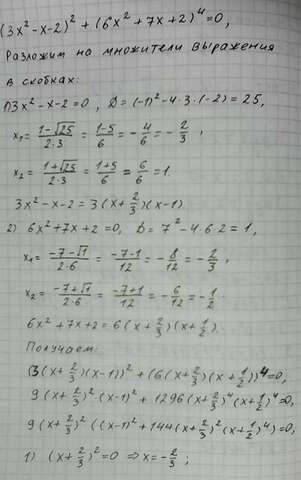 (3x²-x-2)²+(6x²+7x+2)⁴=0,
Разложим на множители выражения
в скобках:
1) 3x²-x-2=0, D=(-1)²-4·3·(-2)=25,
x₁=(1-√25)/(2·3)=(1-5)/6=-4/6=-2/3,
x₂=(1+√25)/(2·3)=(1+5)/6=6/6=1.
3x²-x-2=3(x+2/3)(x-1).
2) 6x²+7x+2=0, D=7²-4·6·2=1,
x₁=(-7-√1)/(2·6)=(-7-1)/12=-8/12=-2/3,
x₂=(-7+√1)/(2·6)=(-7+1)/12=-6/12=-1/2.
6x²+7x+2=6(x+2/3)(x+1/2).
Получаем:
(3(x+2/3)(x-1))²+(6(x+2/3)(x+1/2))⁴=0,
9(x+2/3)²(x-1)²+1296(x+2/3)⁴(x+1/2)⁴=0,
9(x+2/3)²((x-1)²+144(x+2/3)²(x+1/2)⁴)=0;
1) (x+2/3)²=0 ⇒ x=-2/3;